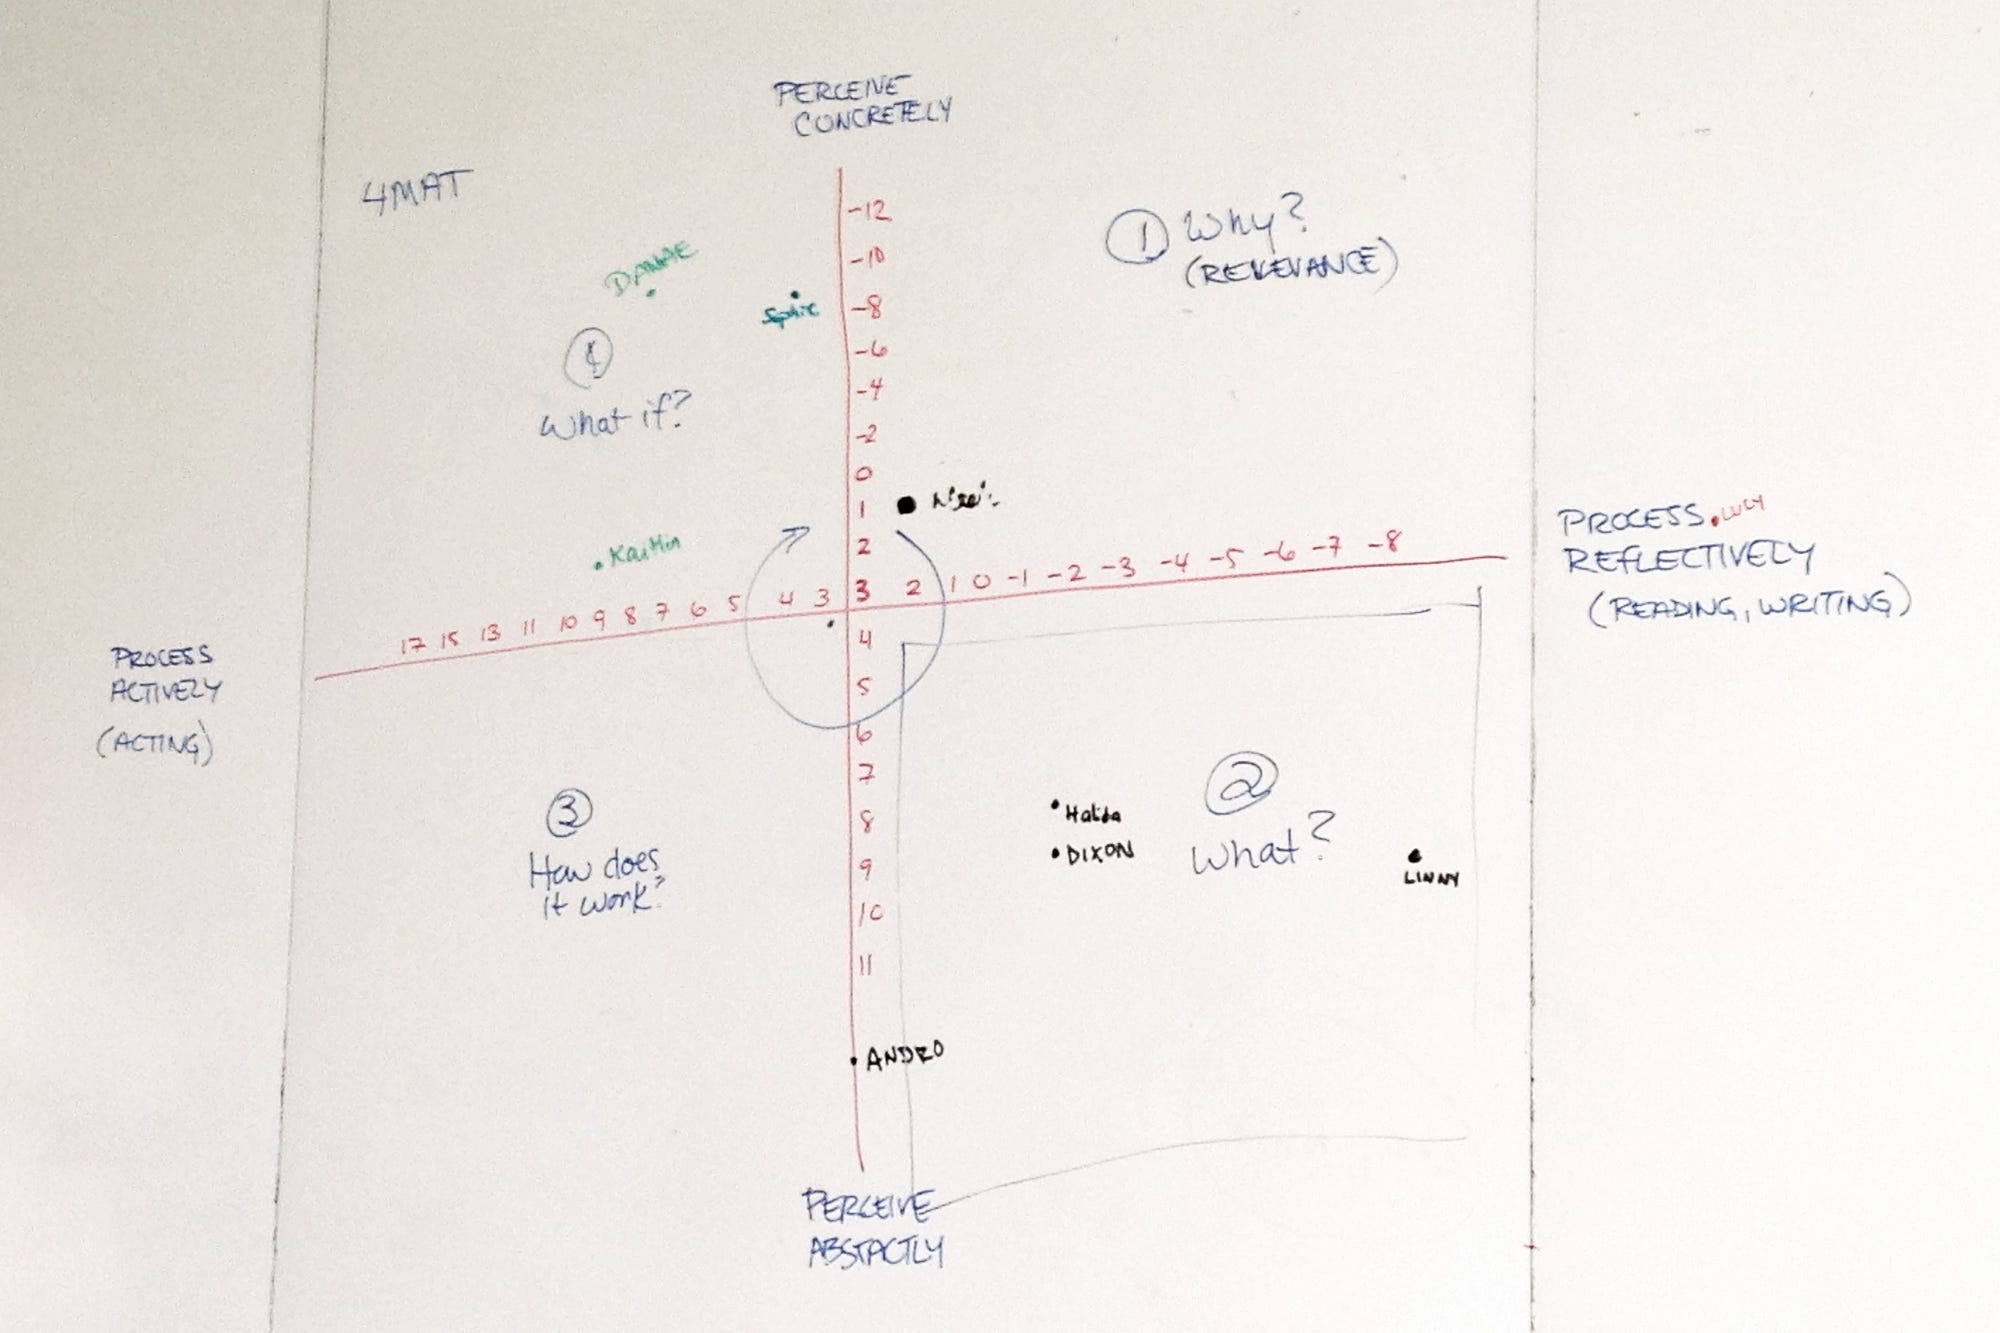 PERCEIVE
CONCRETELY
4MAT
-12
-10
-8
-6
-4
-2
0
1
2
3
4
5
6
7
8
9
10
11
1 Why?
(RELEVANCE)
DANAE
Sophie
4
What if?
Kaitlin
17 15 13 11 10 9 8 7 6 5 4 3
2 1 0 -1 -2 -3 -4 -5 -6 -7 -8
PROCESS
REFLECTIVELY
(READING, WRITING)
LUCY
PROCESS
ACTIVELY
(ACTING)
3
How does
it work?
2
What?
Halida
DIXON
LINNY
ANDRO
PERCEIVE
ABSTACTLY